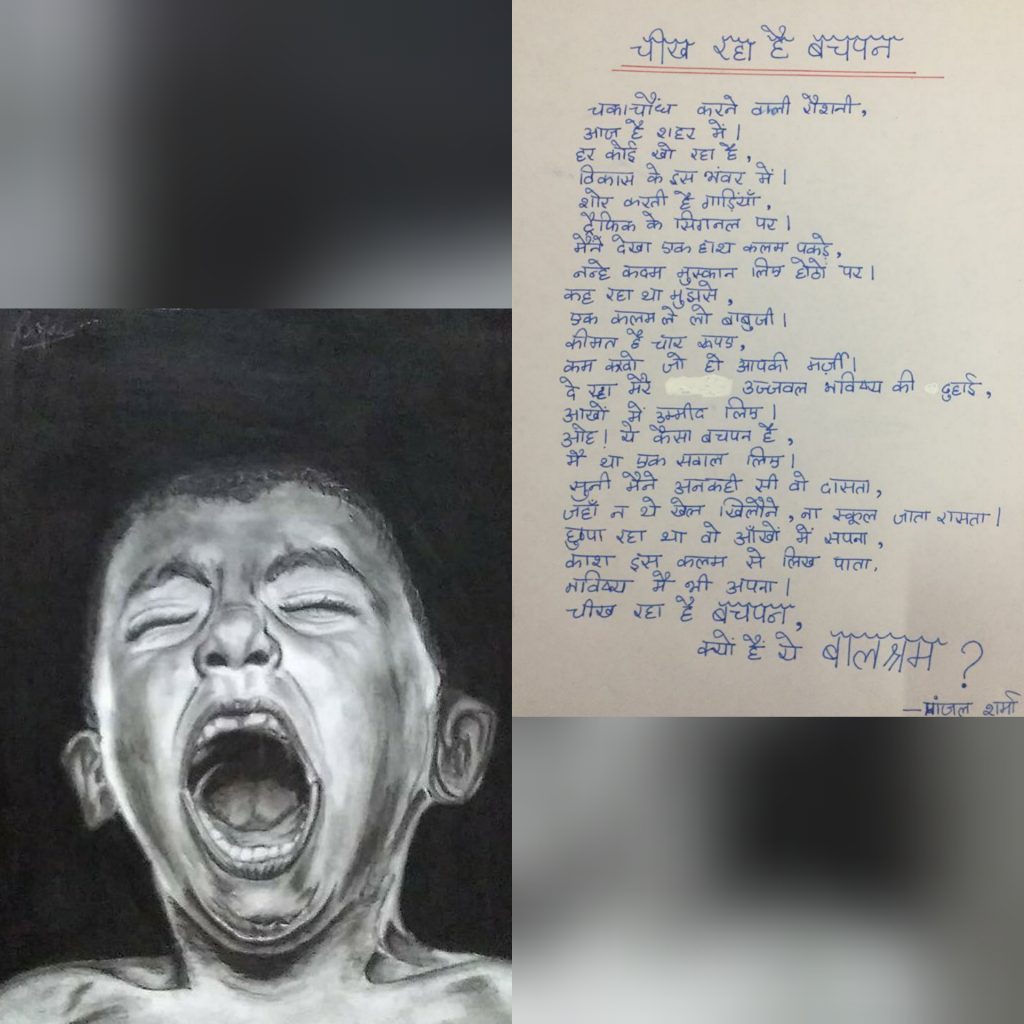 चीख रहा है बचपन
चकाचौंध करने वाली रौशनी,
आज है शहर में।
हर कोई खो रहा है,
विकास के इस भंवर में।
शोर करती है गाड़ियाँ,
ट्रैफिक के सिगनल पर।
मैंने देखा एक हाथ कलम पकड़े,
नन्हे कदम मुस्कान लिए होठों पर।
कह रहा था मुझसे,
एक कलम ले लो बाबुजी।
कीमत है चार रूपए,
कम करवो जो हो आपकी मर्ज़ी।
दे रहा मेरे उज्जवल भविष्य की दुहाई,
आखों में उम्मीद लिए।
ओह! ये कैसा बचपन है,
मैं था एक सवाल लिए।
सुनी मैंने अनकही सी वो दासता,
जहाँ न थे खेल खिलौने, ना स्कूल जाता रासता।
छुपा रहा था वो आँखों में सपना,
काश इस कलम से लिख पाता,
भविष्य मैं भी अपना।
चीख रहा है बचपन,
क्यों है ये बालश्रम?
- प्रांजल शर्मा